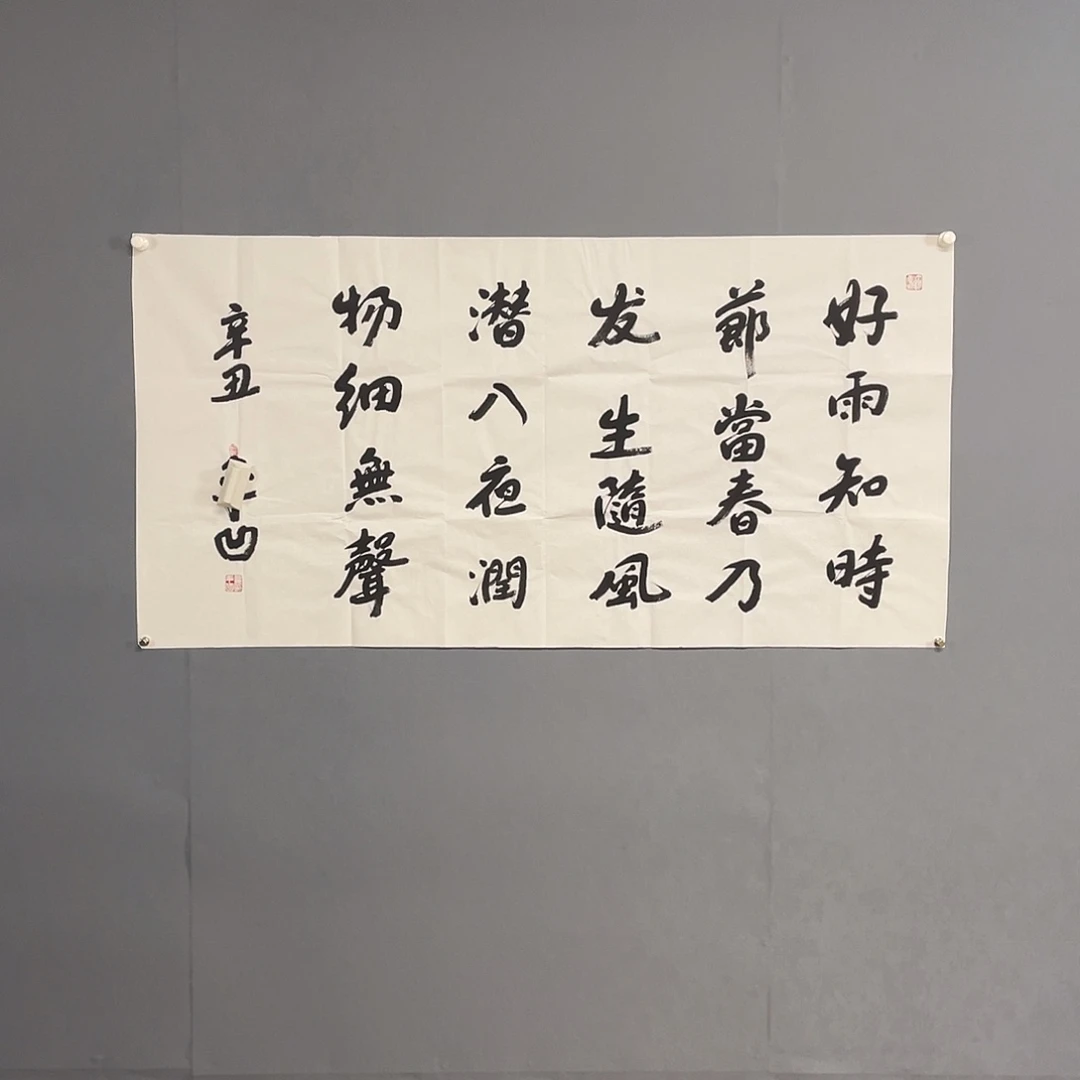 好雨知時
節當春乃
发生隨風
潜入夜潤
物細無聲
辛丑
凹